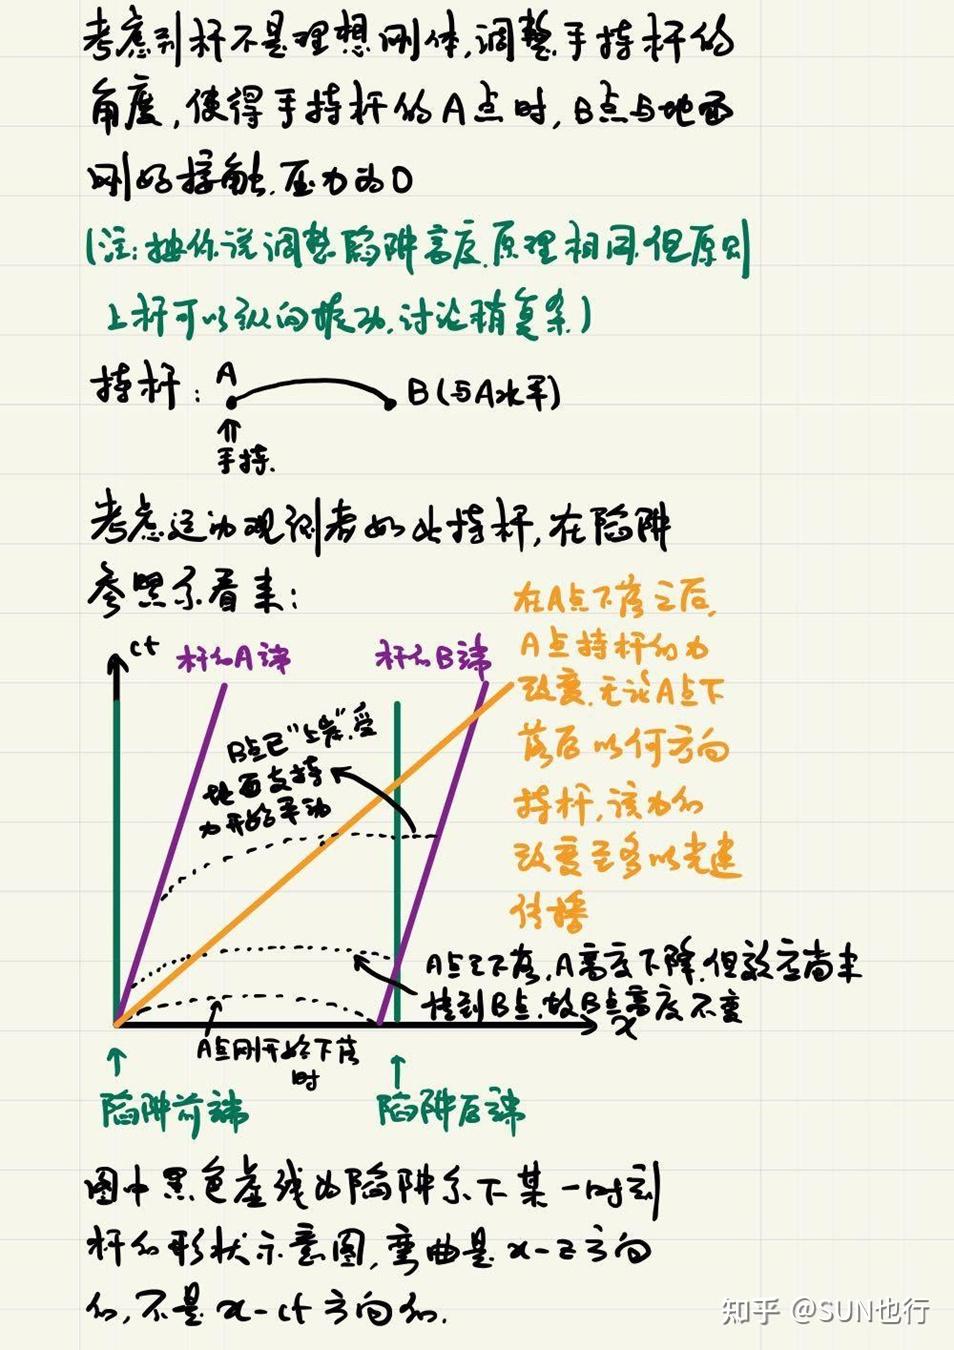 考虑到杆不是理想刚体,调整手持杆的
角度,使得手持杆的A点时,B点与地面
刚好接触.压力为0
(注:按你说调整陷阱高度.原理相同.但原则
上杆可以纵向振动.讨论稍复杂)
持杆: A
B(与A水平)
手持.
考虑运动观测者如此持杆,在陷阱
参照系看来:
在A点下落之后,
A点持杆的力
改变.无论A点下
落后以何方向
持杆,该力的
改变至多以光速
传播
ct
杆的A端
杆的B端
B点已"上岸".受
地面支持
力开始平动
A点已下落,A高度下降.但效应尚未
传到B点.故B点高度不变
x
A点刚开始下落
时
陷阱前端
陷阱后端
图中黑色虚线为陷阱系下某一时刻
杆的形状示意图,弯曲是x-z方向
的,不是x-ct方向的.
知乎 @SUN也行